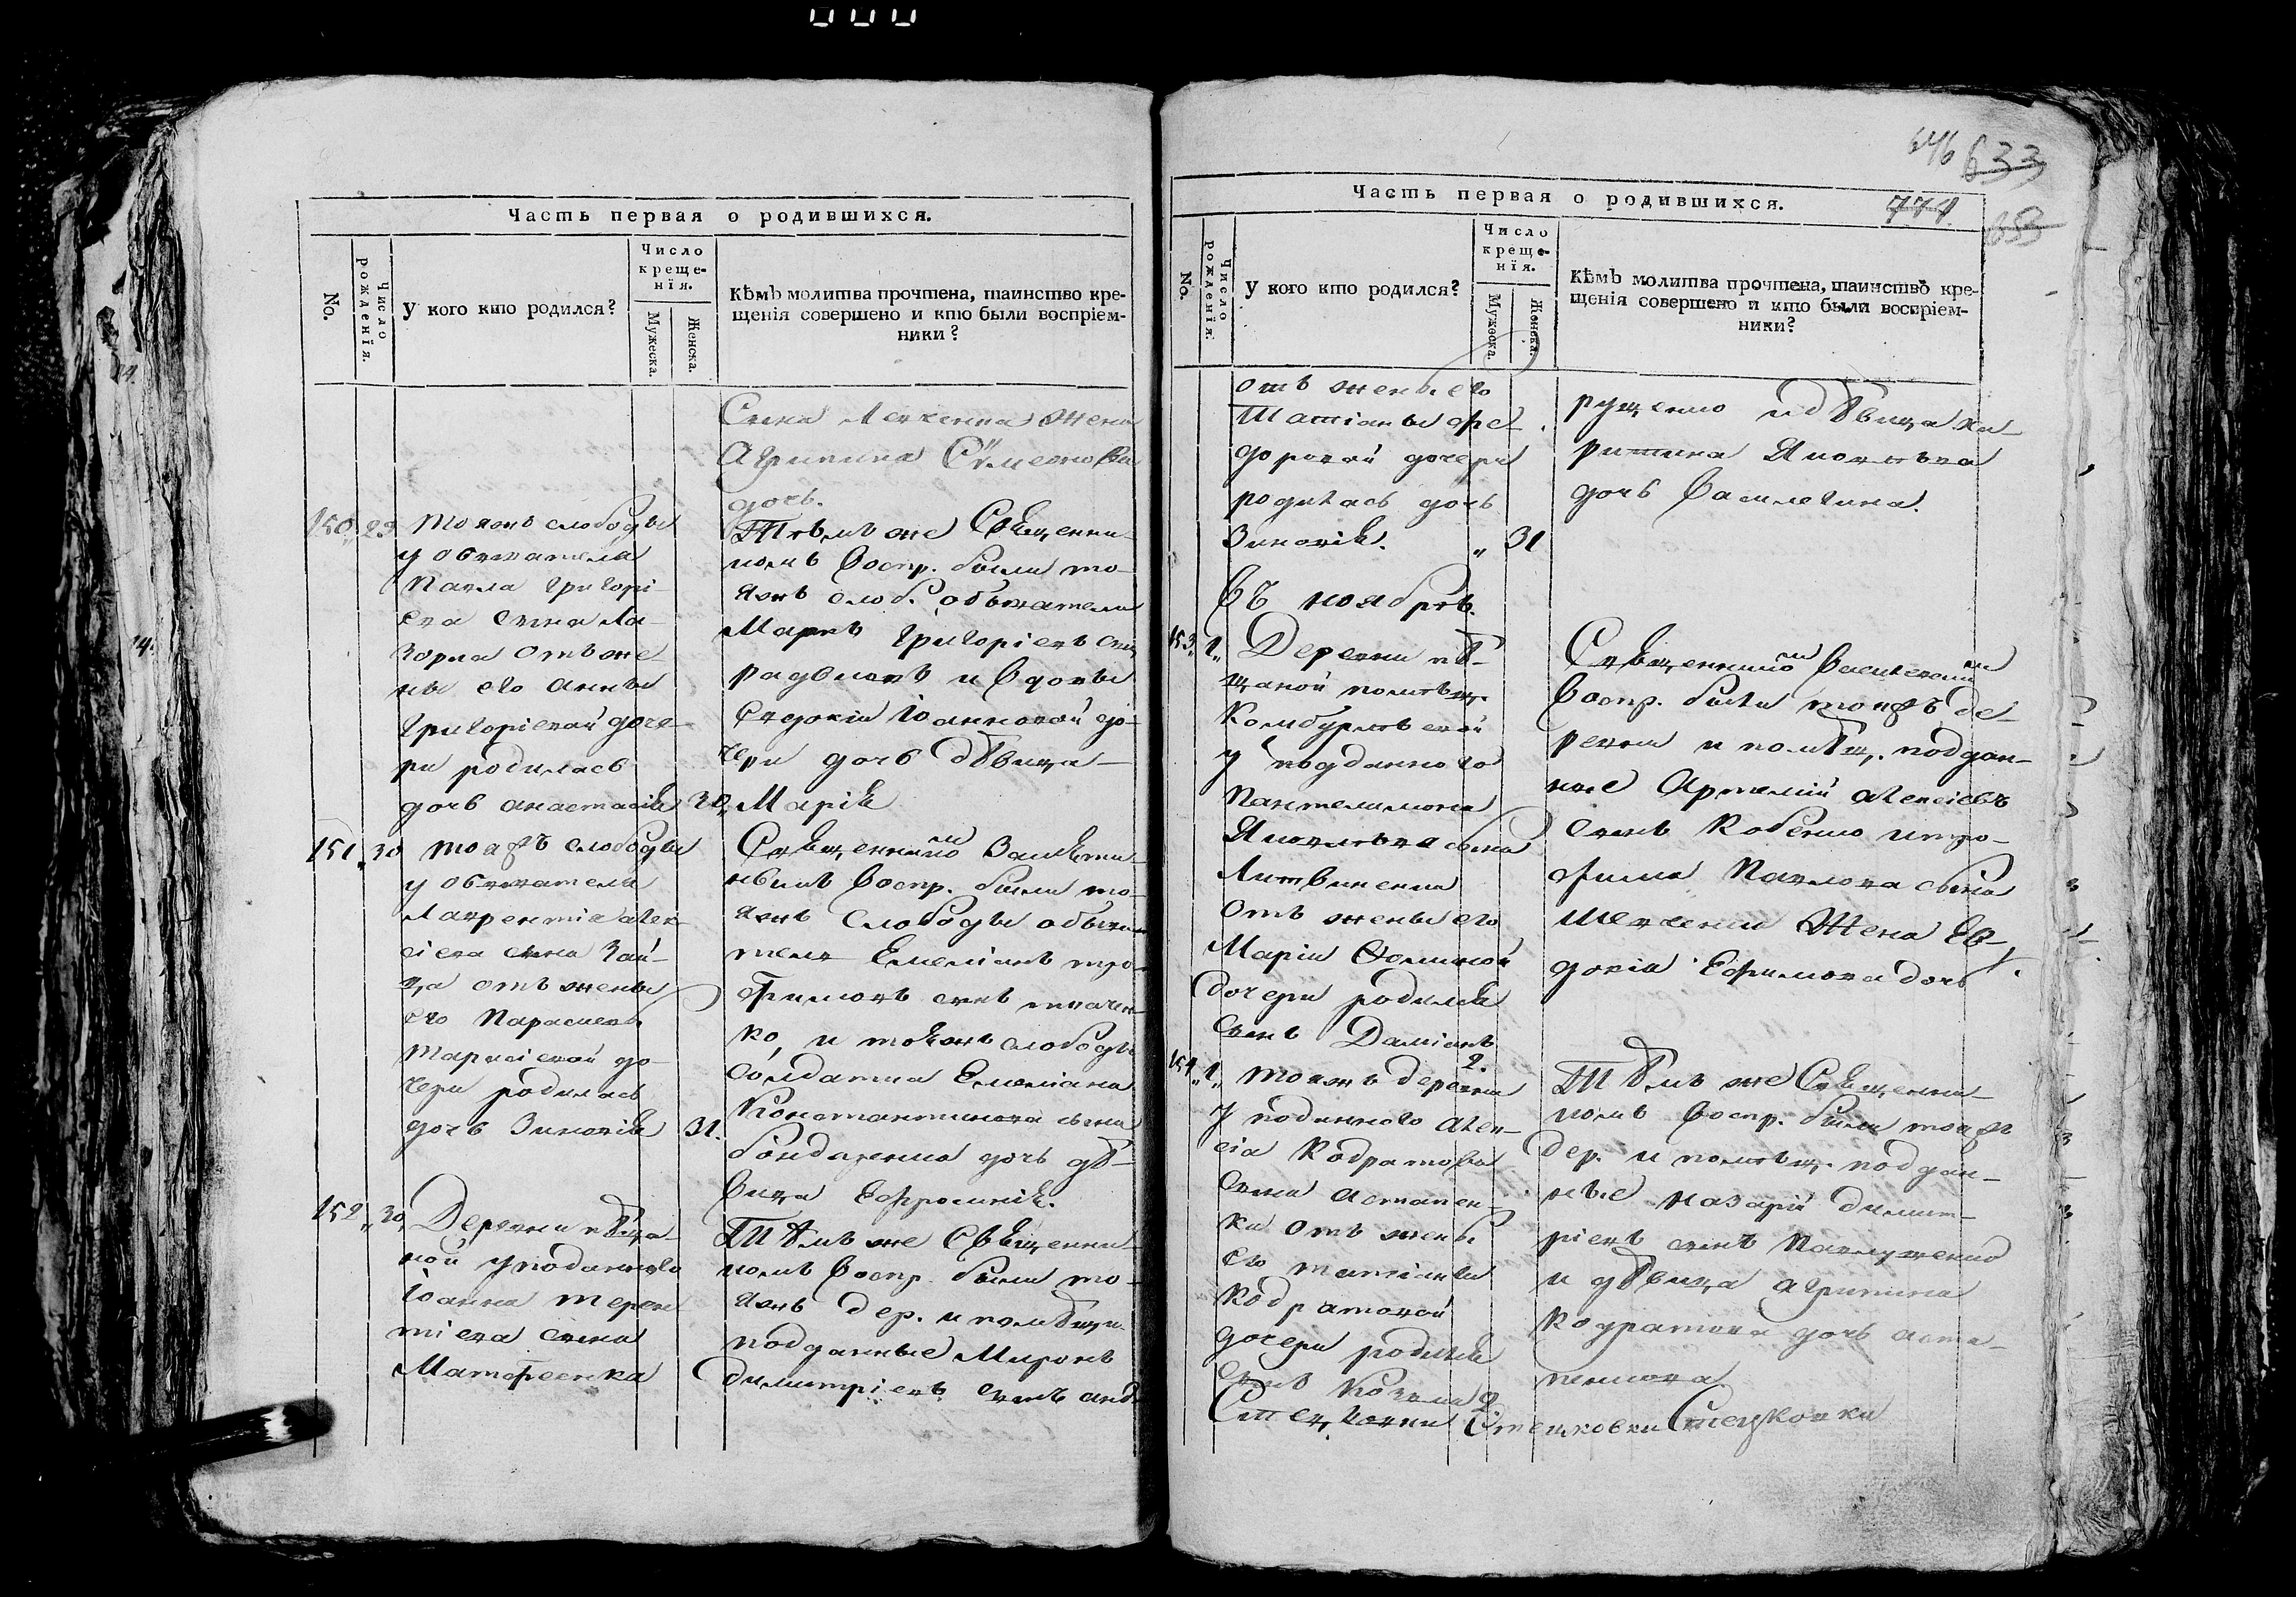 Часть первая о родившихся.
No.
Число рожденїя.
У кого кто родился?
Число
креще-
нїя.
Мужеска.
Женска.
Кѣмъ молитва прочтена, таинство кре-
щенїя совершено и кто были воспрїем-
ники?
сына жена
Агрипина Сѵмеонова
дочь.
150. 29 тояжъ слободы
у обывателя
Павла Григорі-
ева сына Ла-
зорна отъ же-
ны его Анны
Григоріевой доче-
ри родилась
дочь Анастасія 30,
Тѣмъ же Священни-
комъ воспр. были то-
яжъ слоб. обыватели
Маркъ Григоріевъ сынъ
и вдовы
Евдокіи Іоанновой до-
чери дочь дѣвица
Марія
151. 30 тояжъ слободы
у обывателя
Лаврентія Алек-
сіева сына Зай-
ца отъ жены
его Параскевы
Тарасіевой до-
чери родилась
дочь Зиновія 31.
Священникомъ
воспр. были то-
яжъ слободы обыва-
тель Емеліанъ Тро-
фимовъ сынъ Ткачен-
ко, и тояжъ слободы
солдатка Емеліана
Константинова сына
Бондаренка дочь дѣ-
вица Ефросинія.
152. 30, Деревни пѣща-
ной у подданнаго
Іоанна Терен
тіева сына
Матфеенка
Тѣмъ же Священни-
комъ воспр. были то-
яжъ дер. и помѣщи.
подданные Миронъ
Димитріевъ сынъ Анд-
646 633
774
Часть первая о родившихся.
No.
Число рожденїя.
У кого кто родился?
Число
креще-
нїя.
Мужеска.
Женска.
Кѣмъ молитва прочтена, таинство кре-
щенїя совершено и кто были воспрїем-
ники?
отъ жены его
Татіаны Фе-
доровой дочери
родилась дочь
Зиновія. " 31
рущенко и дѣвица Ха-
ритина Яковлева
дочь Василевича.
Въ ноябрѣ.
153. 1. Деревни пѣ-
щаной помѣщ.
Комбурлѣевой
у подданнаго
Пантелимона
Яковлева сына
Литвиненка
отъ жены его
Маріи Ѳоминой
дочери родился
сынъ Даміанъ
2.
Священникомъ Василевскимъ
воспр. были тояжъ де-
ревни и помѣщ. поддан-
ные Артемій Алексіевъ
сынъ Кобенко и тро-
фима Павлова сына
Шевченка жена Ев-
докія Ефимова дочь
154. 1. тояжъ деревни
у подданнаго Алек-
сія Кодратова
сына Астапен-
ка отъ жены
его Татіаны
Кодратовой
дочери родился
сынъ Козма 2.
Тѣмъ же Священни-
комъ воспр. были тояжъ
дер. и помѣщ. поддан-
ные Назарій Димит-
ріевъ сынъ Павлуженко
и дѣвица Агрипина
Кодратова дочь Аста-
пенкова
Стецковки Стецковки Стецковки